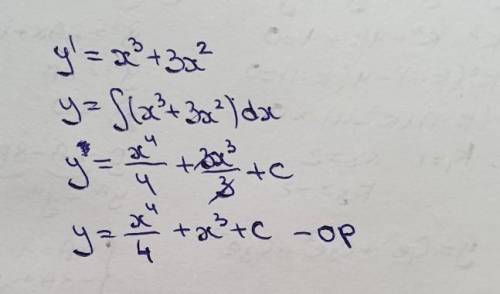 y' = x³ + 3x²
y = ∫(x³ + 3x²)dx
y = x⁴/4 + 3x³/3 + c
y = x⁴/4 + x³ + c - op